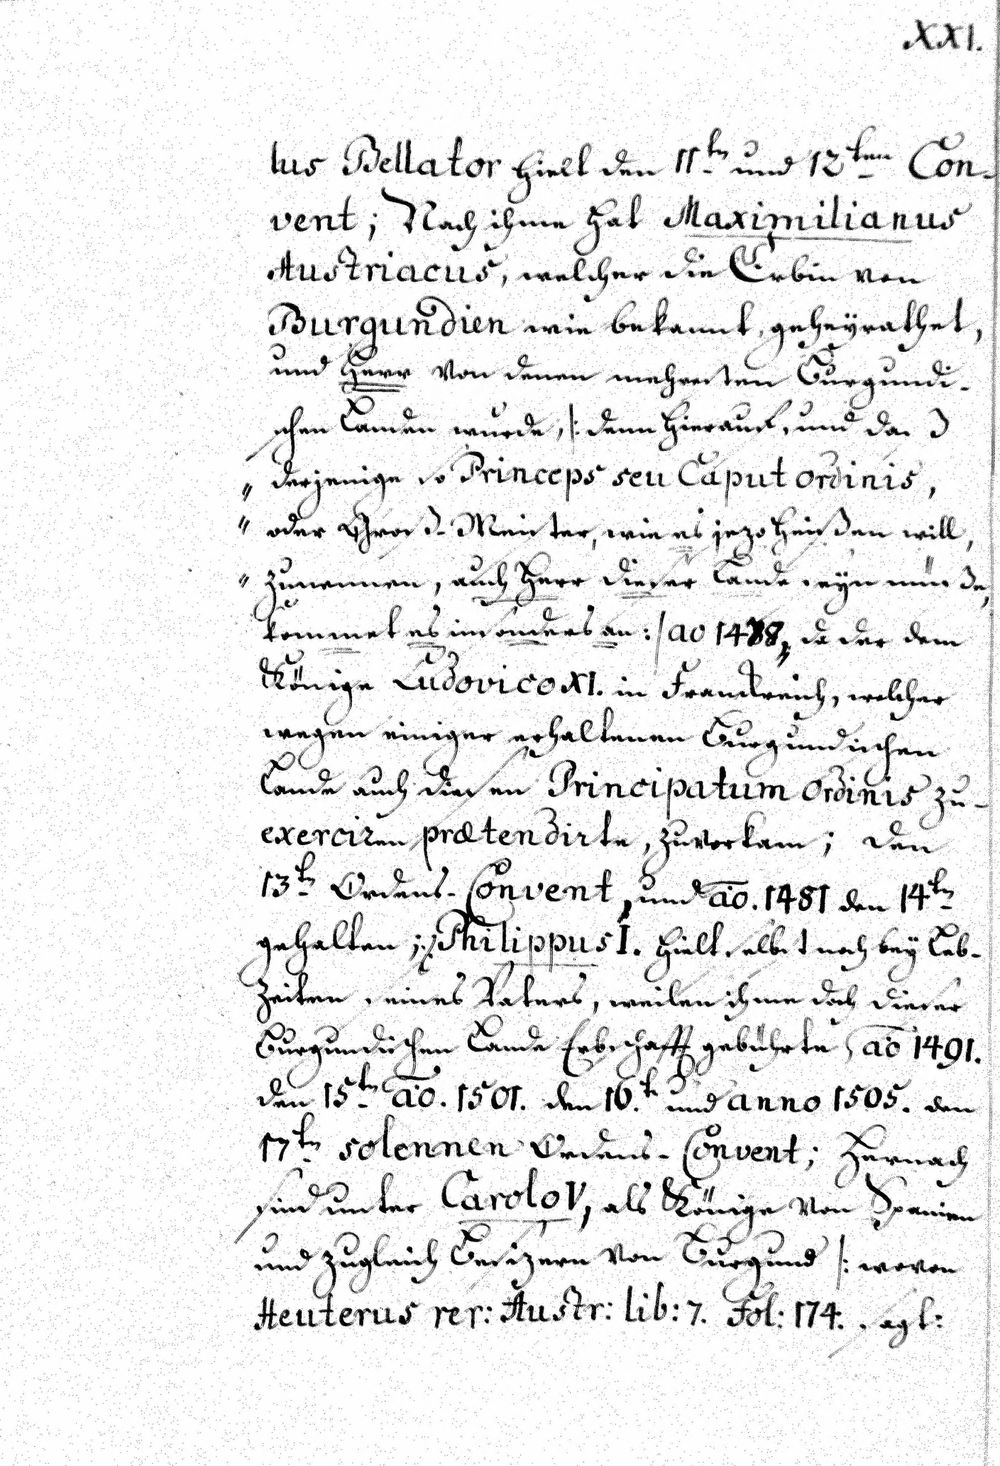 XXI.
lus Bellator hielt den 11tn und 12ten Con-
vent; Nach ihme hat Maximilianus
Austriacus, welcher die Erbin von
Burgundien wie bekannt, geheyrathet,
und Herr von denen mehresten Burgundi-
schen Landen wurde, /: denn hierauf, und daß
" derjenige so Princeps seu Caput ordinis,
" oder Groß-Meister, wie es jezo heißen will,
" zunennen, auch Herr dieser Lande seyn müße,
kommet es insonders an :/ ao 1478, da der dem
Könige Ludovico XI. in Franckreich, welcher
wegen einiger erhaltenen Burgundischen
Lande auch diesen Principatum ordinis zu-
exerciren prætendirte, zuvorkam; den
13tn Ordens-Convent, und ao. 1481 den 14tn
gehalten; Philippus I. hielt selbst noch bey Leb-
Zeiten seines Vaters, weilen ihme doch dieser
Burgundischen Lande Erbschafft gebührte, ao 1491.
den 15tn ao. 1501. den 16.t und anno 1505. den
17tn solennen Ordens-Convent; Hernach
sind unter Carolo V, als Könige von Spanien
und zugleich Besizern von Burgund /: wovon
Heuterus rer: Austr: lib: 7. Fol: 174. sagt: